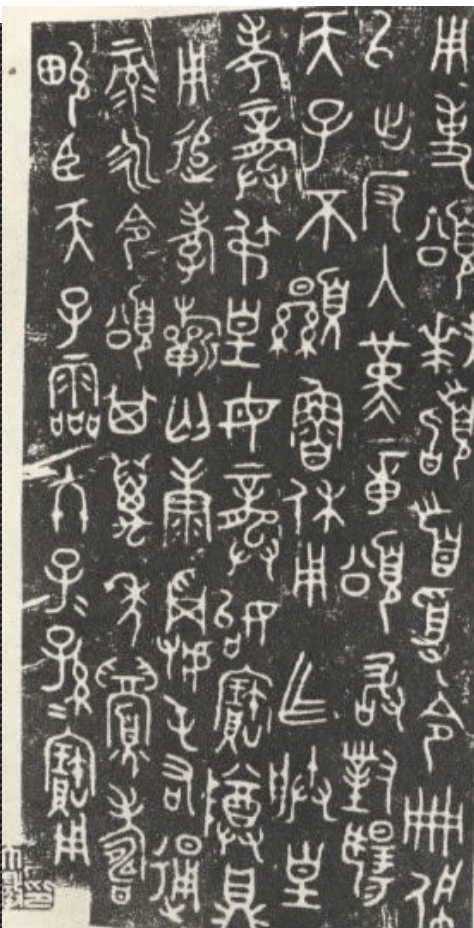 用事頌拜𩒨首受令冊佩
以出反入堇章頌敢對揚
天子不顯魯休用乍朕皇
考龏弔皇母龏始寶尊鼎
用追孝匃康屯右通
彔永令頌其萬年眉壽
畯臣天子霝冬子〻孫〻寶用